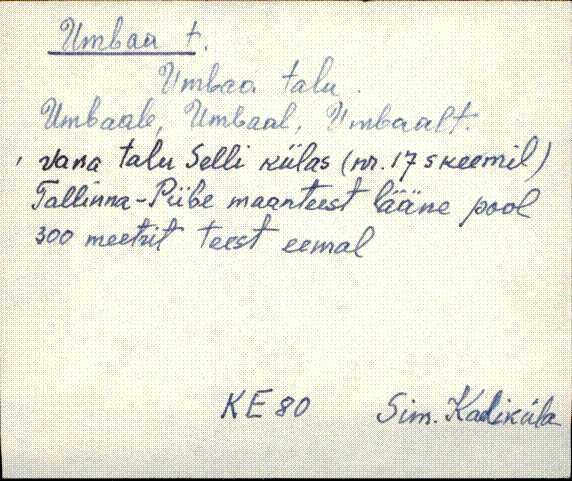 Umbaa t.
Umbaa talu.
Umbaale, Umbaal, Umbaalt.
vana talu Selli külas (nr. 17 skeemil)
Tallinna-Piibe maanteest lääne pool
300 meetrit teest eemal
KE 80 Sim. Kadiküla